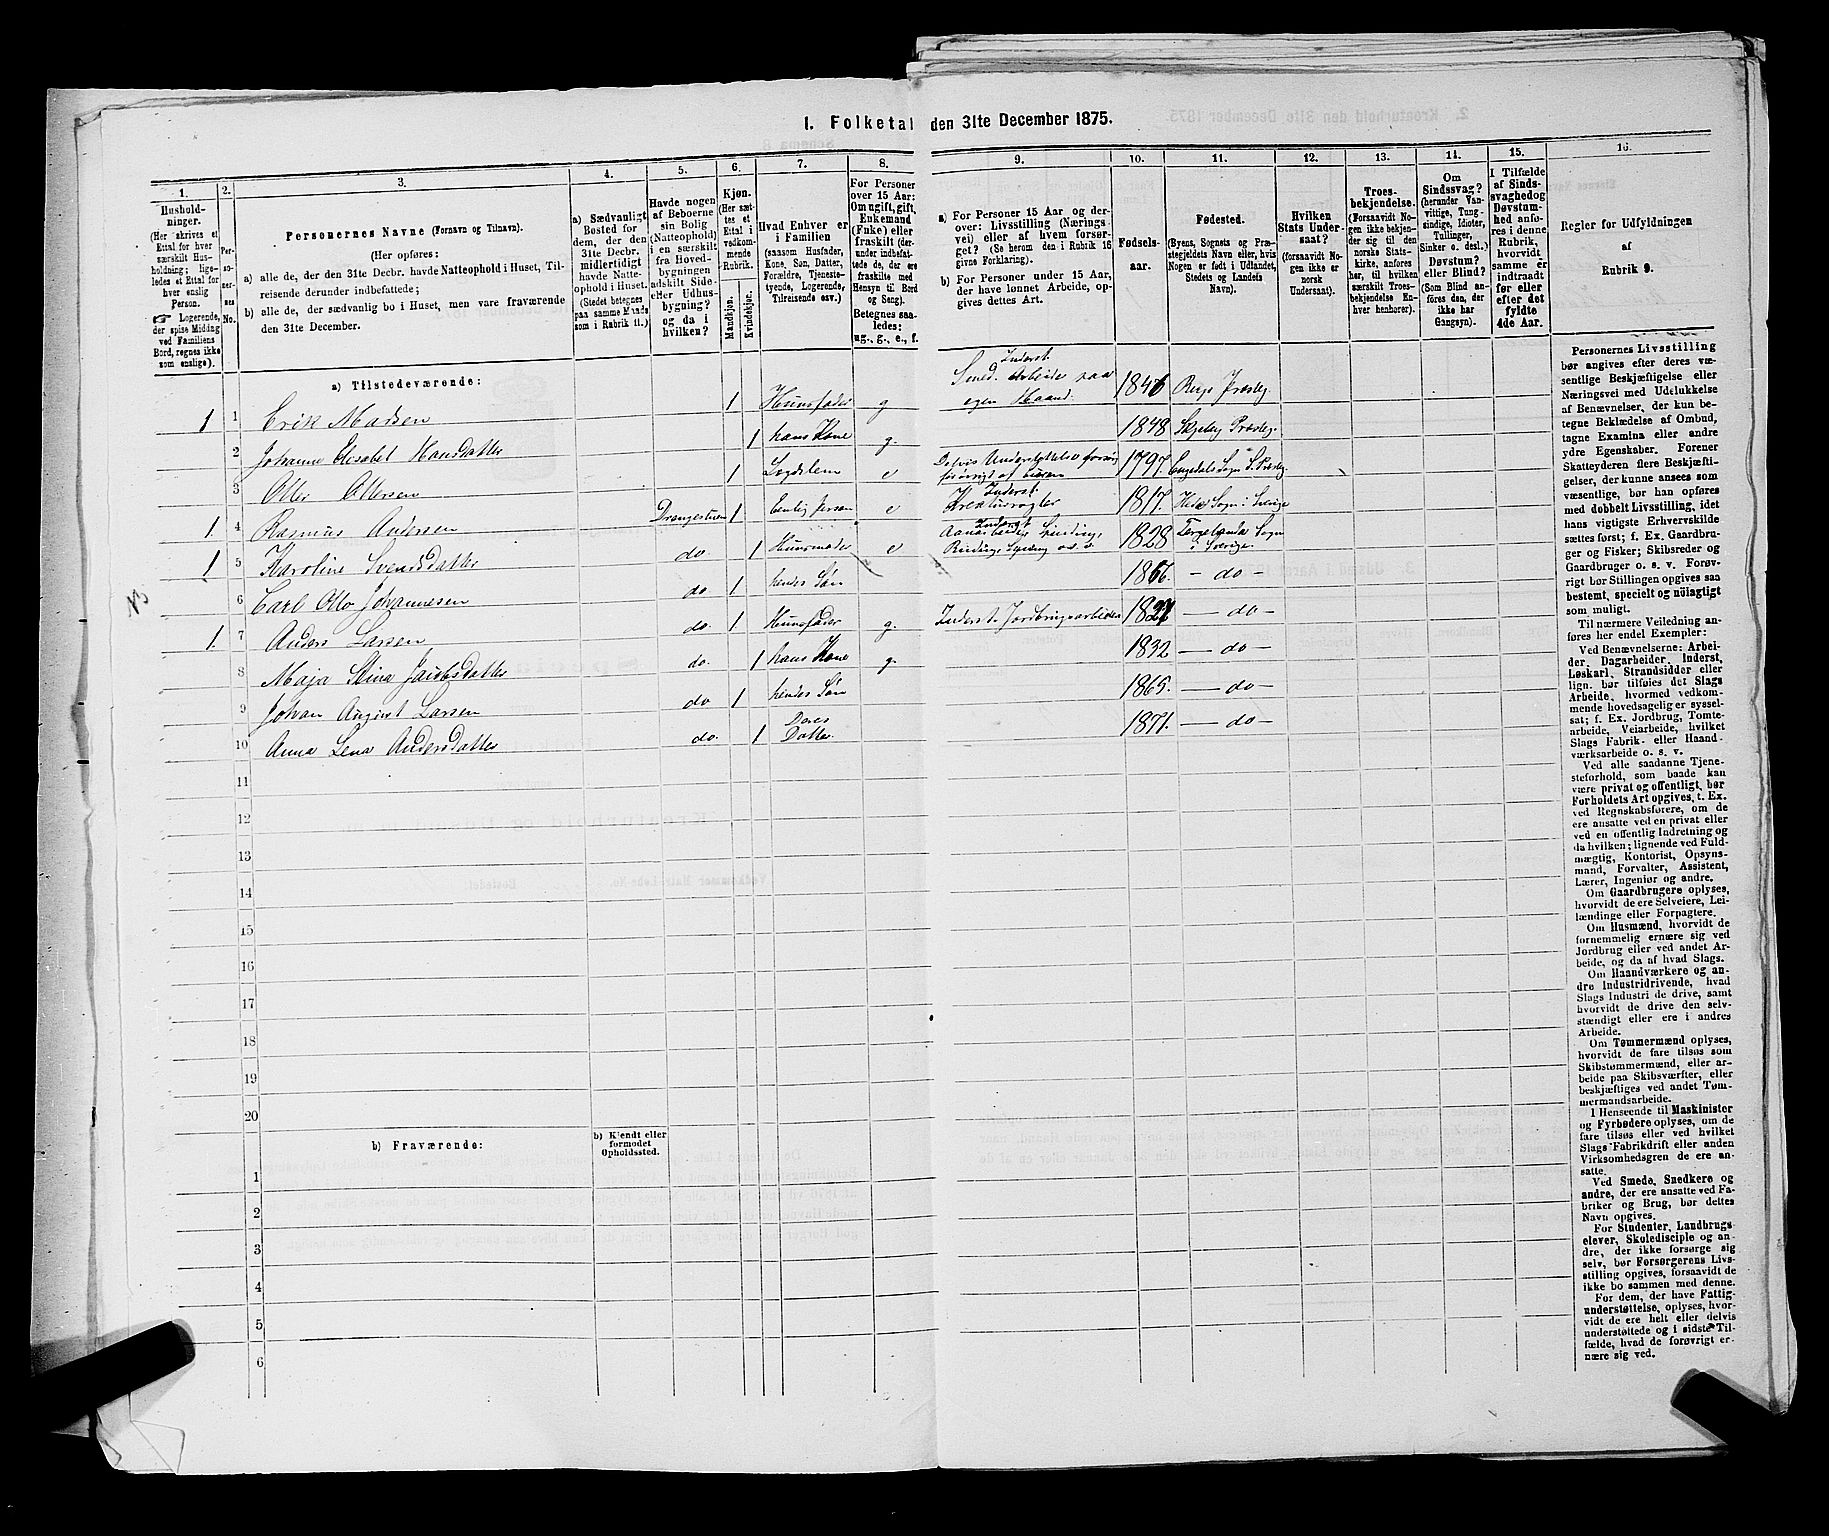 1. Folketal den 31te December 1875.
1.
Husholdninger.
(Her skrives et Ettal for hver særskilt Husholdning; ligeledes et Ettal for hver enslig Person.
☞ Logerende, der spise Middag ved Familiens Bord, regnes ikke som enslige).
2.
Personernes No.
3.
Personernes Navne (Fornavn og Tilnavn).
(Her opføres:
a) alle de, der den 31te Decbr. havde Natteophold i Huset, Tilreisende derunder indbefattede;
b) alle de, der sædvanlig bo i Huset, men vare fraværende den 31te December.
4.
a) Sædvanligt Bosted for dem, der den 31te Decbr. midlertidigt havde Natteophold i Huset.
(Stedet betegnes paa samme Maade som i Rubrik 11.)
5.
Havde nogen af Beboerne sin Bolig (Natteophold) i en særskilt fra Hovedbygningen adskilt Side- eller Udhusbygning? og da i hvilken?
6.
Kjøn.
(Her sættes et Ettal i vedkommende Rubrik.
Mandkjøn.
Kvindekjøn.
7.
Hvad Enhver er i Familien
(saasom Husfader, Kone, Søn, Datter, Forældre, Tjenestetyende, Logerende, Tilreisende osv.)
8.
For Personer over 15 Aar: Om ugift, gift, Enkemand (Enke) eller fraskilt (derunder indbefattede de, der ere fraskilte med Hensyn til Bord og Seng).
Betegnes saaledes: ug., g., e., f.
9.
a) For Personer 15 Aar og derover: Livsstilling (Næringsvei) eller af hvem forsørget? (Se herom den i Rubrik 16 givne Forklaring).
b) For Personer under 15 Aar, der have lønnet Arbeide, opgives dettes Art.
10.
Fødselsaar.
11.
Fødested.
(Byens, Sognets og Præstegjeldets Navn eller, hvis Nogen er født i Udlandet, Stedets og Landets Navn).
12.
Hvilken Stats Undersaat?
(forsaavidt Nogen ikke er norsk Undersaat).
13.
Troesbekjendelse.
(Forsaavidt Nogen ikke bekjender sig til den norske Statskirke, anføres her, til hvilken særskilt Troesbekjendelse Enhver henhører).
14.
Om Sindssvag? (herunder Vanvittige, Tungsindige, Idioter, Tullinger, Sinker o. desl.) Døvstum? eller Blind? (Som Blind anføres den, der ikke har Gangsyn).
15.
I Tilfælde af Sindssvaghed og Døvstumhed anføres i denne Rubrik, hvorvidt samme er indtraadt før eller efter det fyldte 4de Aar.
16.
Regler for Udfyldningen
af
Rubrik 9.
a) Tilstedeværende:
1 1 Erik Madsen 1 Huusfader g Smed. Inderst. Arbeide paa egen Haand. 1846 Bergs Præstg.
2 Johanne Elisabet Hansdatter 1 hans Kone g. 1848 Skjeberg Præstg.
3 Otter Ottersen 1 Lægdslem e 1797
1 4 Rasmus Andersen 1 Enslig person e Inderst. Kreaturrøgter 1817. Sogn i Sverige
1 5 Karoline Svendsdatter do. 1 Huusmoder e Inderst Spinding, Binding, Syning o.s.v. 1828 Sogn i Sverige.
6 Carl Otto Johannesen do 1 hendes Søn 1866. - do -
1. 7 Anders Larsen do. 1 Huusfader g. Inderst. Jordbrugsarbeider - do -
8 Maja Stina Jacobsdatter do. 1 hans Kone g. 1832 - do -
9 Johan August Larsen do 1 hendes Søn 1865. - do -
10 Anna Lena Andersdatter do. 1 Deres Datter 1871. - do -
11
12
13
14
15
16
17
18
19
20
b) Fraværende:
b) Kjendt eller formodet Opholdssted.
1
2
3
4
5
6
Personernes Livsstilling
bør angives efter deres væ-
sentlige Beskjæftigelse eller
Næringsvei med Udelukkelse
af Benævnelser, der kun be-
tegne Beklædelse af Ombud,
tagne Examina eller andre
ydre Egenskaber. Forener
Skatteyderen flere Beskjæfti-
gelser, der kunne ansees som
væsentlige, bør han opføres
med dobbelt Livsstilling, idet
hans vigtigste Erhvervskilde
sættes først; f. Ex. Gaardbru-
ger og Fisker; Skibsreder og
Gaardbruger o. s. v. Forøv-
rigt bør Stillingen opgives saa
bestemt, specielt og nøiagtigt
som muligt.
Til nærmere Veiledning an-
føres her endel Exempler:
Ved Benævnelserne: Arbei-
der, Dagarbeider, Inderst,
Løskarl, Strandsidder eller
lign. bør tilføies det Slags
Arbeide, hvormed vedkom-
mende hovedsagelig er syssel-
sat; f. Ex. Jordbrug, Tomte-
arbeide, Veiarbeide, hvilket
Slags Fabrik- eller Haand-
værksarbeide o. s. v.
Ved alle saadanne Tjene-
steforhold, som baade kan
være privat og offentligt, bør
Forholdets Art opgives, t. Ex.
ved Regnskabsførere, om de
ere ansatte ved en privat eller
ved en offentlig Indretning og
da hvilken; lignende ved Fuld-
mægtig, Kontorist, Opsyns-
mand, Forvalter, Assistent,
Lærer, Ingeniør og andre.
Om Gaardbrugere oplyses,
hvorvidt de ere Selveiere, Lei-
lændinge eller Forpagtere.
Om Husmænd, hvorvidt de
fornemmelig ernære sig ved
Jordbrug eller ved andet Ar-
beide, og da af hvad Slags.
Om Haandværkere og an-
dre Industridrivende, hvad
Slags Industri de drive, samt
hvorvidt de drive den selv-
stændigt eller ere i andres
Arbeide.
Om Tømmermænd oplyses,
hvorvidt de fare tilsøs som
Skibstømmermænd, eller ar-
beide paa Skibsværfter, eller
beskjæftiges ved andet Tøm-
mermandsarbeide.
I Henseende til Maskinister
og Fyrbødere oplyses, om de
fare tilsøs eller ved hvilket
Slags Fabrikdrift eller anden
Virksomhedsgren de ere an-
satte.
Ved Smede, Snedkere og
andre, der ere ansatte ved Fa-
briker og Brug, bør dettes
Navn opgives.
For Studenter, Landbrugs-
elever, Skoledisciple og an-
dre, der ikke forsørge sig
selv, bør Forsørgerens Livs-
stilling opgives, forsaavidt de
ikke bo sammen med denne.
For dem, der have Fattig-
understøttelse, oplyses, hvor-
vidt de ere helt eller delvis
understøttede og i sidste Til-
fælde, hvad de forøvrigt er-
nære sig ved.